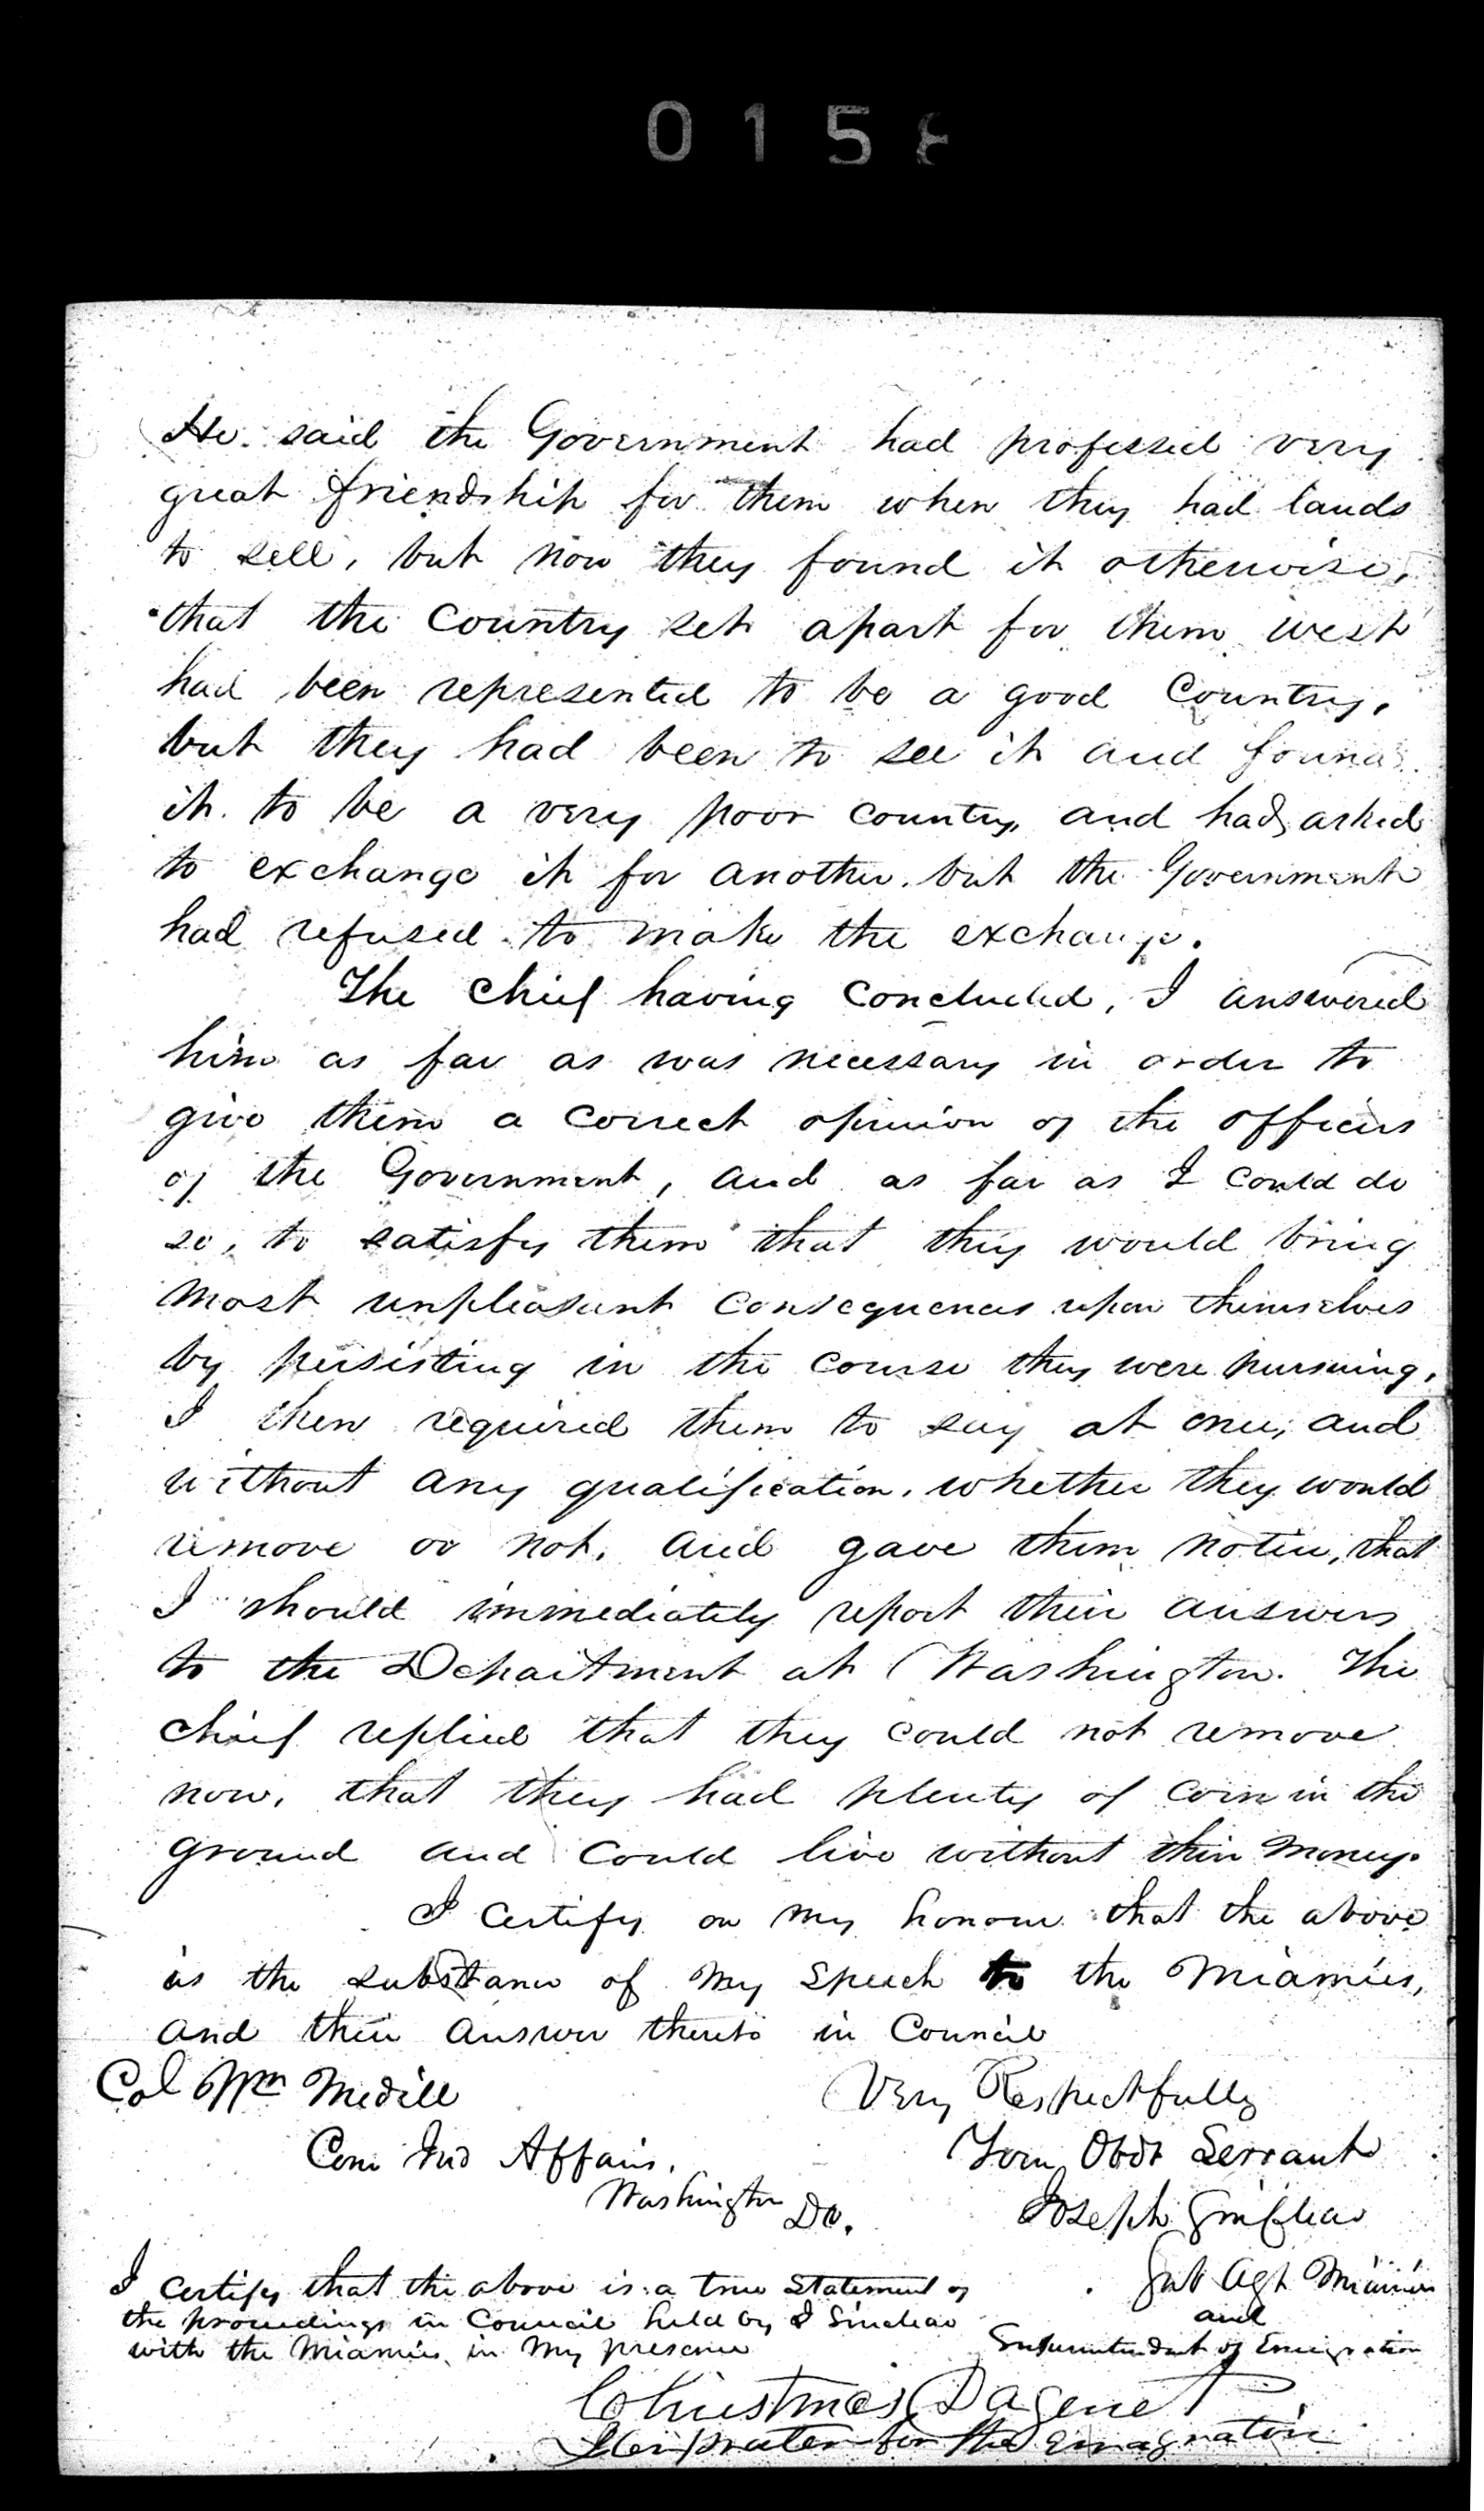 0158
He said the Government had professed very
great friendship for them when they had lands
to sell, but now they found it otherwise,
that the Country set apart for them west
had been represented to be a good Country,
but they had been to see it and found
it to be a very poor country, and had asked
to exchange it for another, but the Government
had refused to make the exchange.
The Chief having Concluded, I answered
him as far as was necessary in order to
give them a correct opinion of the officers
of the Government, and as far as I could do
so, to satisfy them that they would bring
most unpleasant Consequences upon themselves
by persisting in the course they were pursuing.
I then required them to say at once, and
without any qualification, whether they would
remove or not, and gave them notice, that
I should immediately report their answers
to the Department at Washington. The
chief replied that they could not remove
now, that they had plenty of corn in the
ground and could live without their money.
I certify on my honour that the above
is the substance of my speech to the Miamies,
and their answer thereto in Council
Col Wm Medill
Very Respectfully
Com Ind Affairs,
Your Obdt Servant
Washington DC.
Joseph Sinclear
Sub Agt Miamies
I certify that the above is a true Statement of
and
the proceedings in Council held by J Sinclear
Superintendent of Emigration
with the Miamies in my presence
Christmas Dagenet
Interpreter for the Emagration